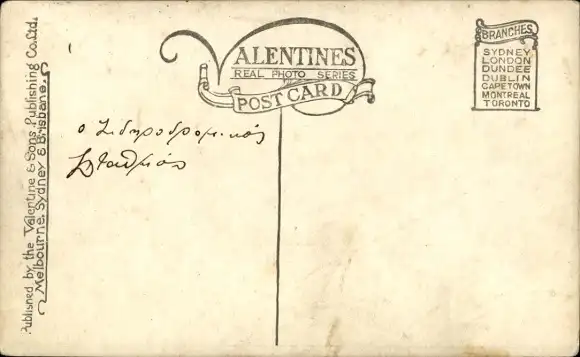 VALENTINES
REAL PHOTO SERIES
POST CARD
BRANCHES
SYDNEY
LONDON
DUNDEE
DUBLIN
CAPETOWN
MONTREAL
TORONTO
ο Σιδηροδρομικός
Σταθμός
Published by the Valentine & Sons Publishing Co. Ltd.
Melbourne, Sydney & Brisbane.